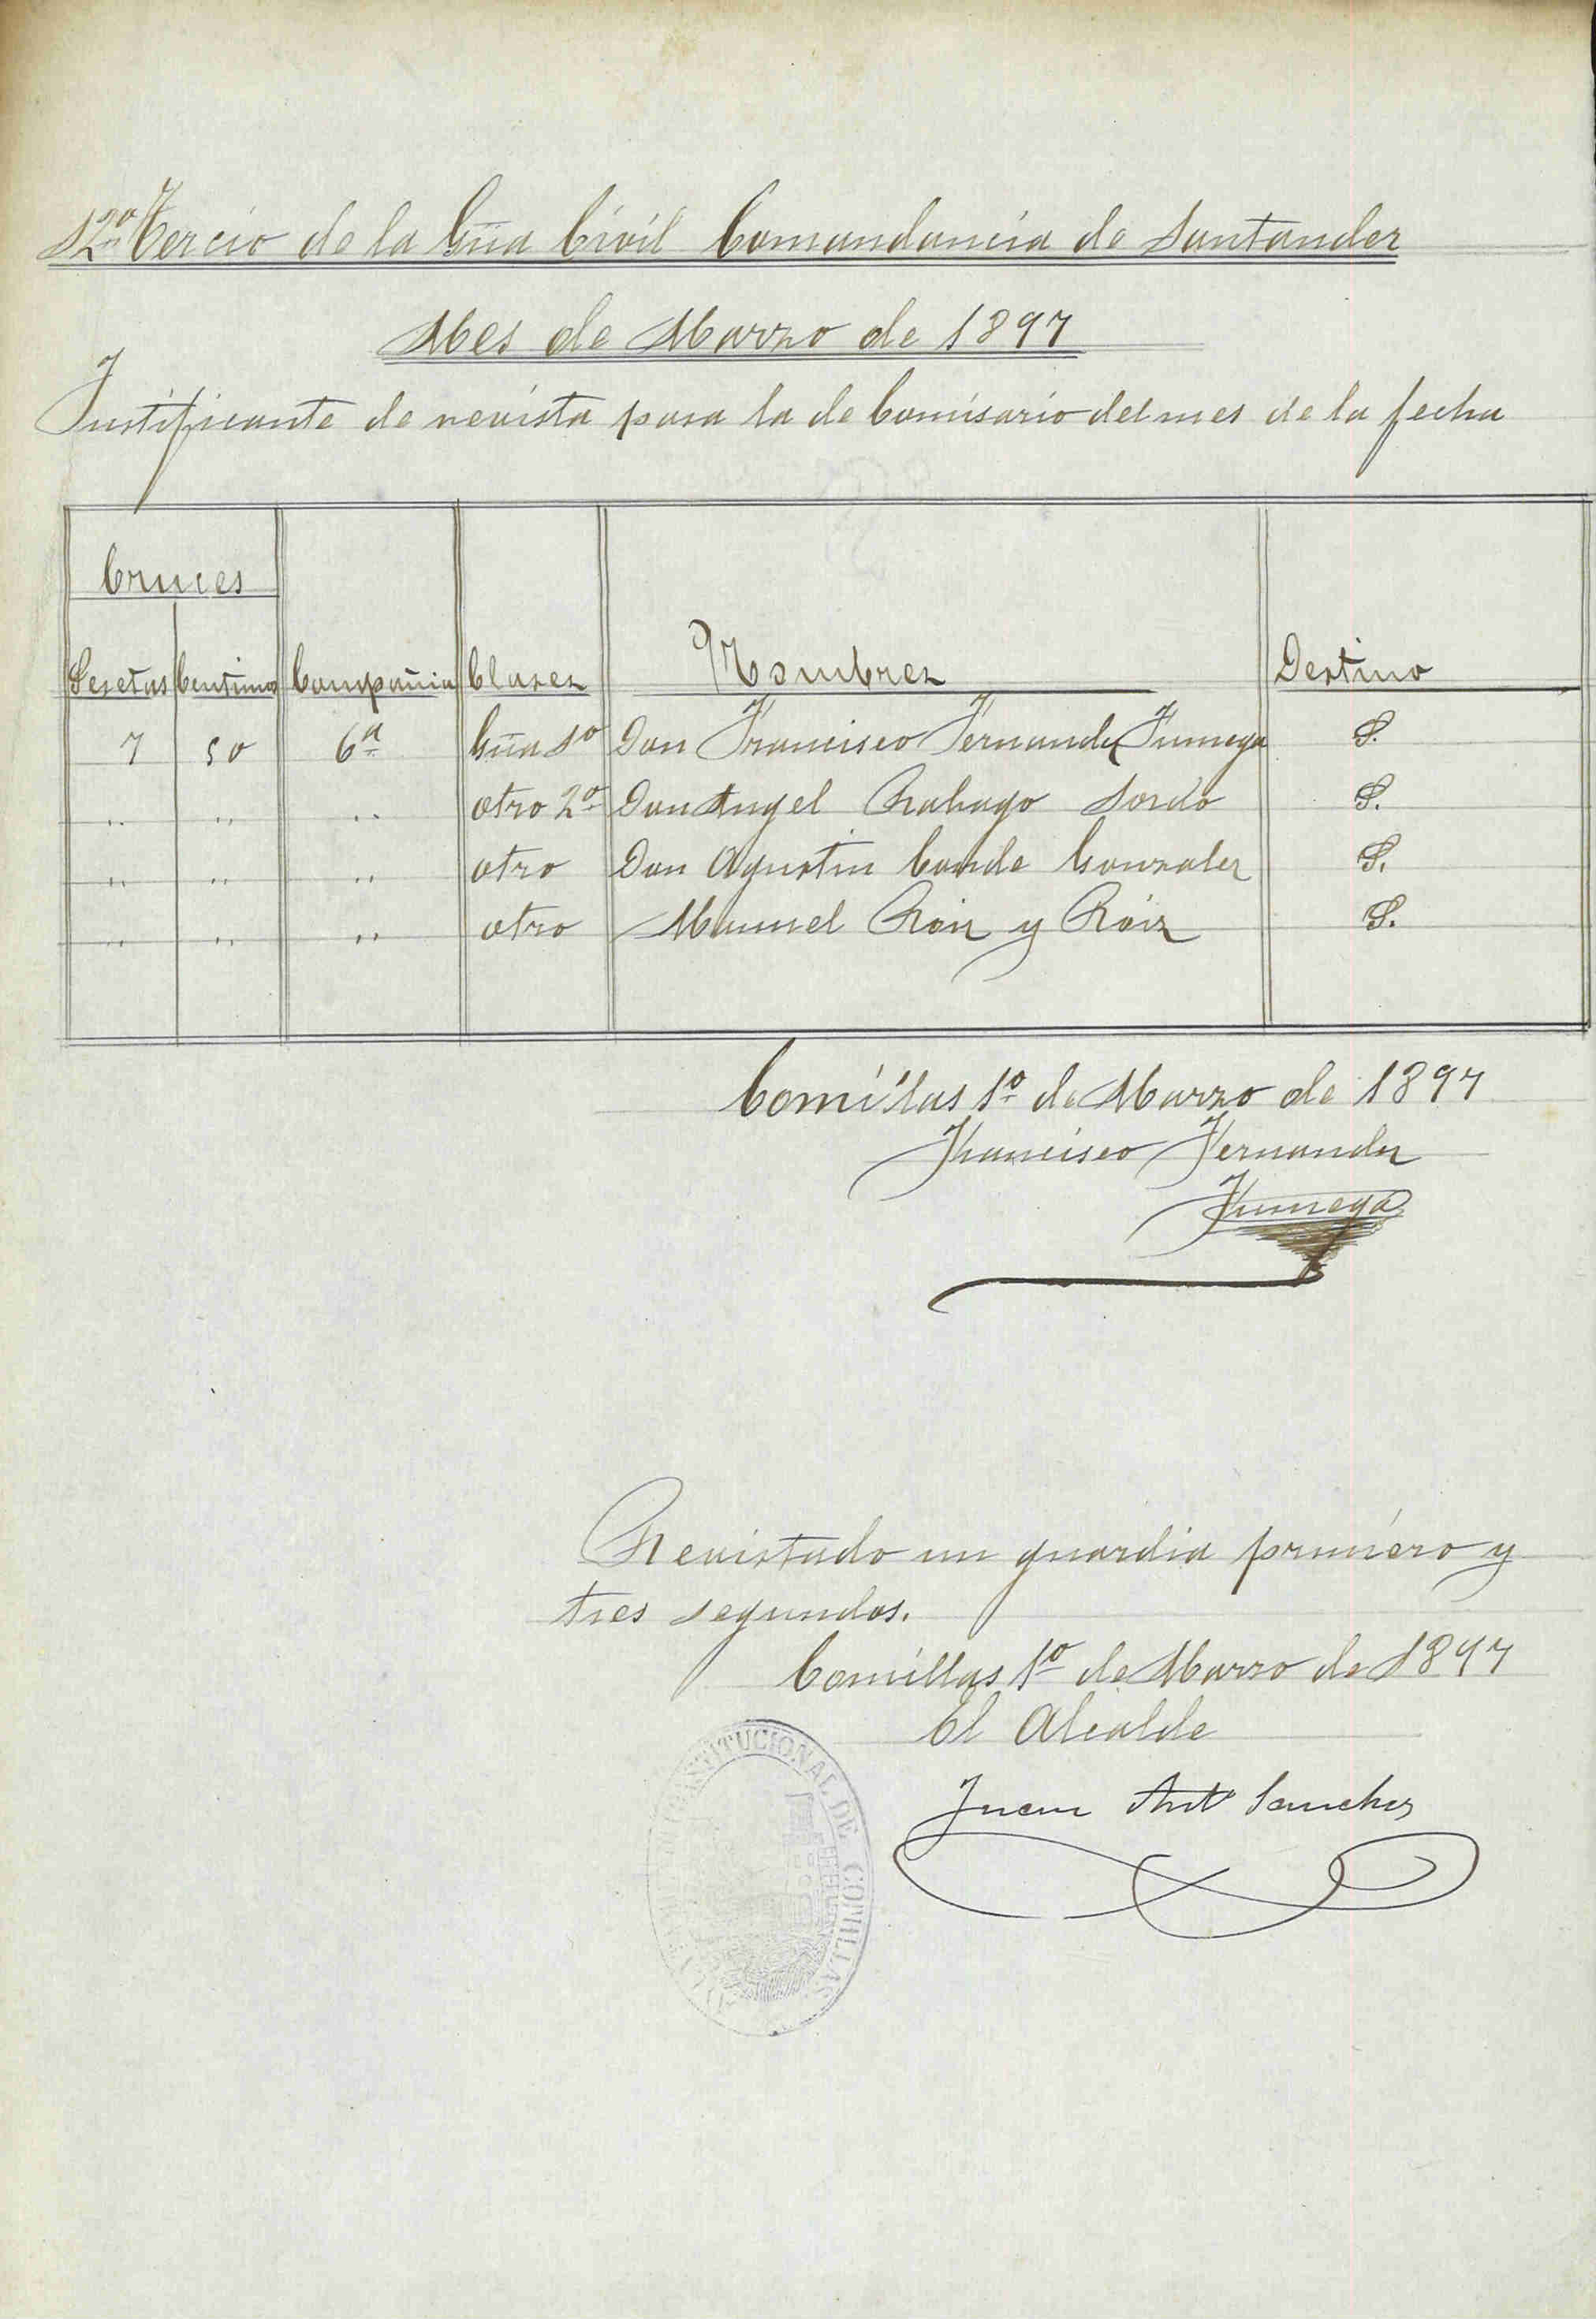 12º Tercio de la Gũa Civil Comandancia de Santander
Mes de Marzo de 1897
Justificante de revista para la de Comisario del mes de la fecha
Cruces
Pesetas Centimos Compañia Clases Nombres Destino
7 50 6ª Gũa 1º Don Francisco Fernandez Fumega P.
" " " otro 2º Don Angel Rabago Sordo P.
" " " otro Don Agustin Conde Gonzalez P.
" " " otro Manuel Roiz y Roiz P.
Comillas 1º de Marzo de 1897
Francisco Fernandez
Fumega
Revistado un guardia primero y
tres segundos.
Comillas 1º de Marzo de 1897
El Alcalde
Juan Antº Sanchez
CONSTITUCIONAL DE COMILLAS